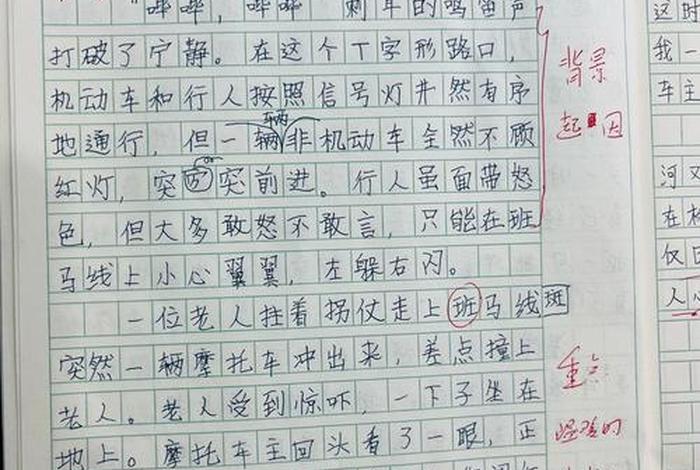 "哗哗，哗哗"刺耳的鸣笛声
打破了宁静。在这个丁字形路口，
机动车和行人按照信号灯井然有序
地通行，但一辆非机动车全然不顾
辆
红灯，突突前进。行人虽面带怒
色，但大多敢怒不敢言，只能在班
马线上小心翼翼，左躲右闪。
一位老人拄着拐仗走上班马线斑
突然一辆摩托车冲出来，差点撞上
老人。老人受到惊吓，一下子坐在
地上。摩托车主回头看了一眼，正
背景
起因
重点
这时
我一
车主
河又
在
仅
人